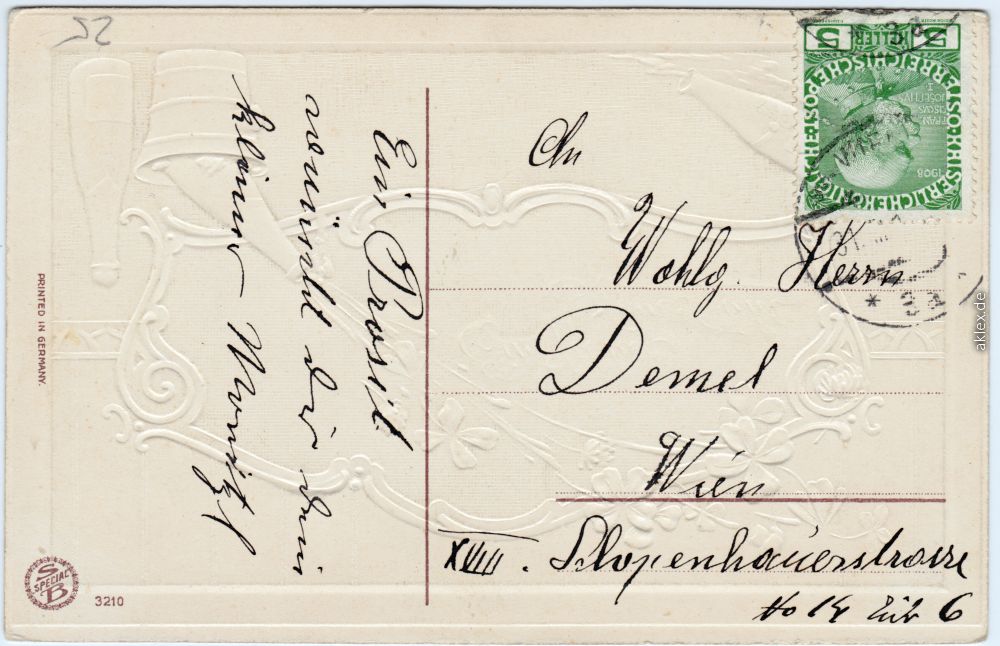 52
Ein Prosit
wünscht Dir Dein
kleiner Moritzl
An
Wohlg. Herrn
Demel
Wien
XVIII. Schopenhauerstrasse
No 14 6
PRINTED IN GERMANY.
S
SPECIAL
B
3210
5 HELLER 5
KAISERLICHE KÖNIGLICHE ÖSTERREICHISCHE POST
FRANZ JOSEPH I
1908
WIEN
aklex.de